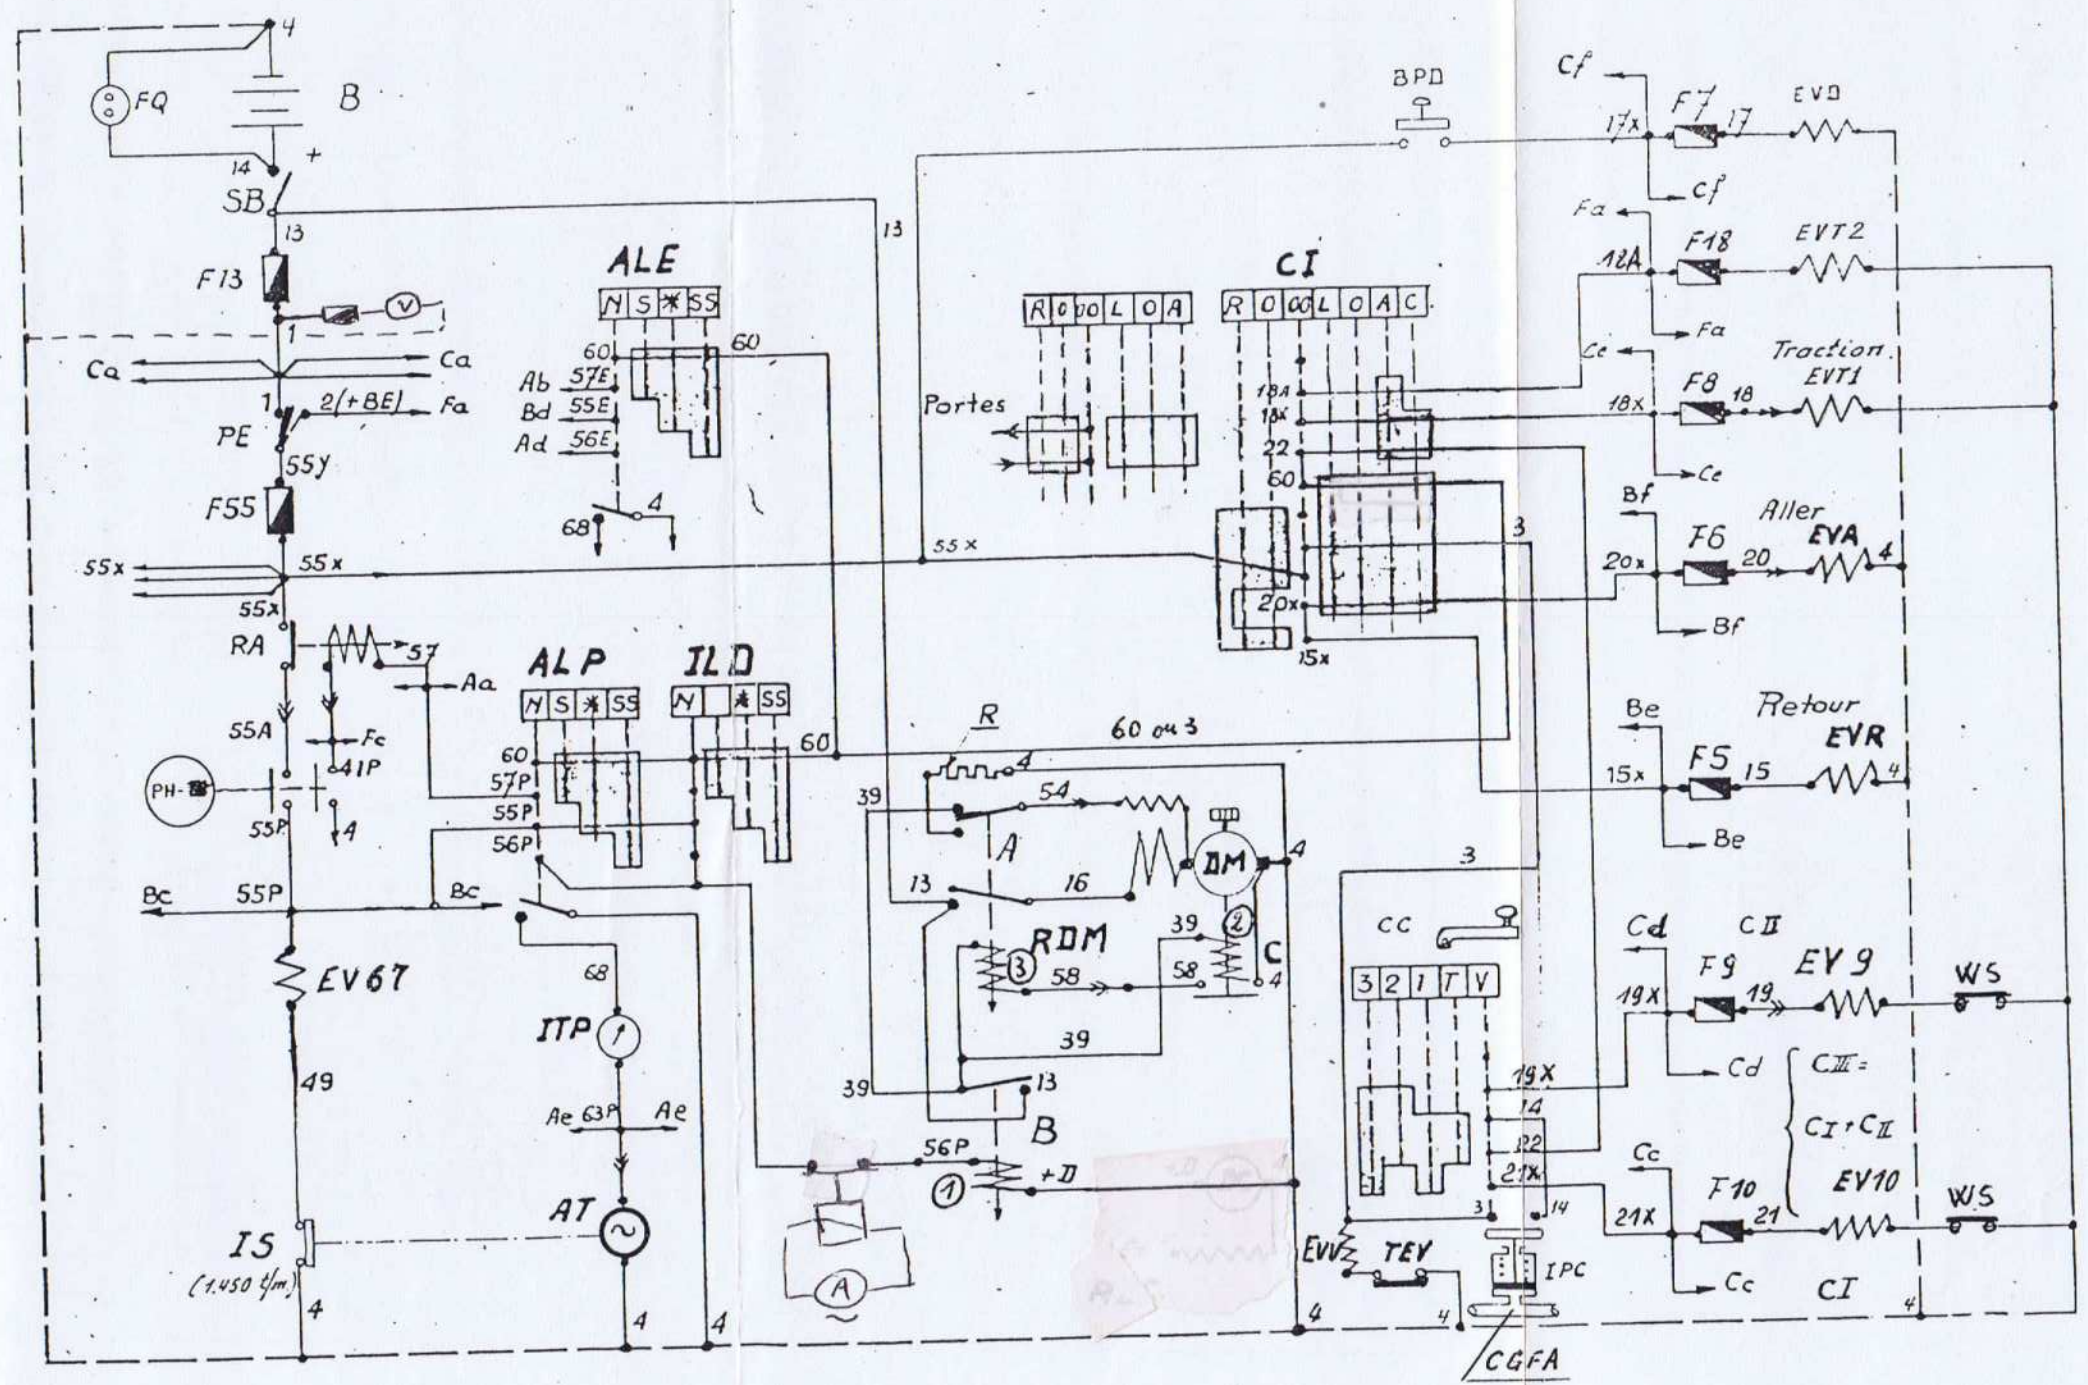 4
FQ
B
14
+
SB
13
13
F13
V
1
Ca
Ca
1
2(+BE)
Fa
PE
55y
F55
55x
55x
55x
55x
RA
57
Aa
55A
Fc
41P
PH-
55P
4
Bc
55P
Bc
EV67
49
IS
(1.450 t/m.)
4
ALE
N S * SS
60
60
Ab
57E
Bd
55E
Ad
56E
4
68
ALP
N S * SS
ILD
N * SS
60
60
57P
55P
56P
68
ITP
Ae
63P
Ae
AT
4
4
R
4
60 ou 3
39
54
A
DM
4
13
16
RDM
3
39
2
C
58
58
4
39
39
13
B
56P
+D
1
A
4
BPD
CI
R O OO L O A
R O OO L O A C
Portes
18A
18x
22
60
3
20x
15x
3
CC
3 2 1 T V
19X
14
22
21X
3
14
EVV
TEV
4
IPC
CGFA
Cf
17x
F7
17
EVD
Cf
Fa
12A
F18
EVT2
Fa
Ce
Traction
18x
F8
18
EVT1
Ce
Bf
Aller
20x
F6
20
EVA
4
Bf
Be
Retour
15x
F5
15
EVR
4
Be
Cd
CII
19X
F9
19
EV9
WS
Cd
CIII =
CI + CII
Cc
21X
F10
21
EV10
WS
Cc
CI
4